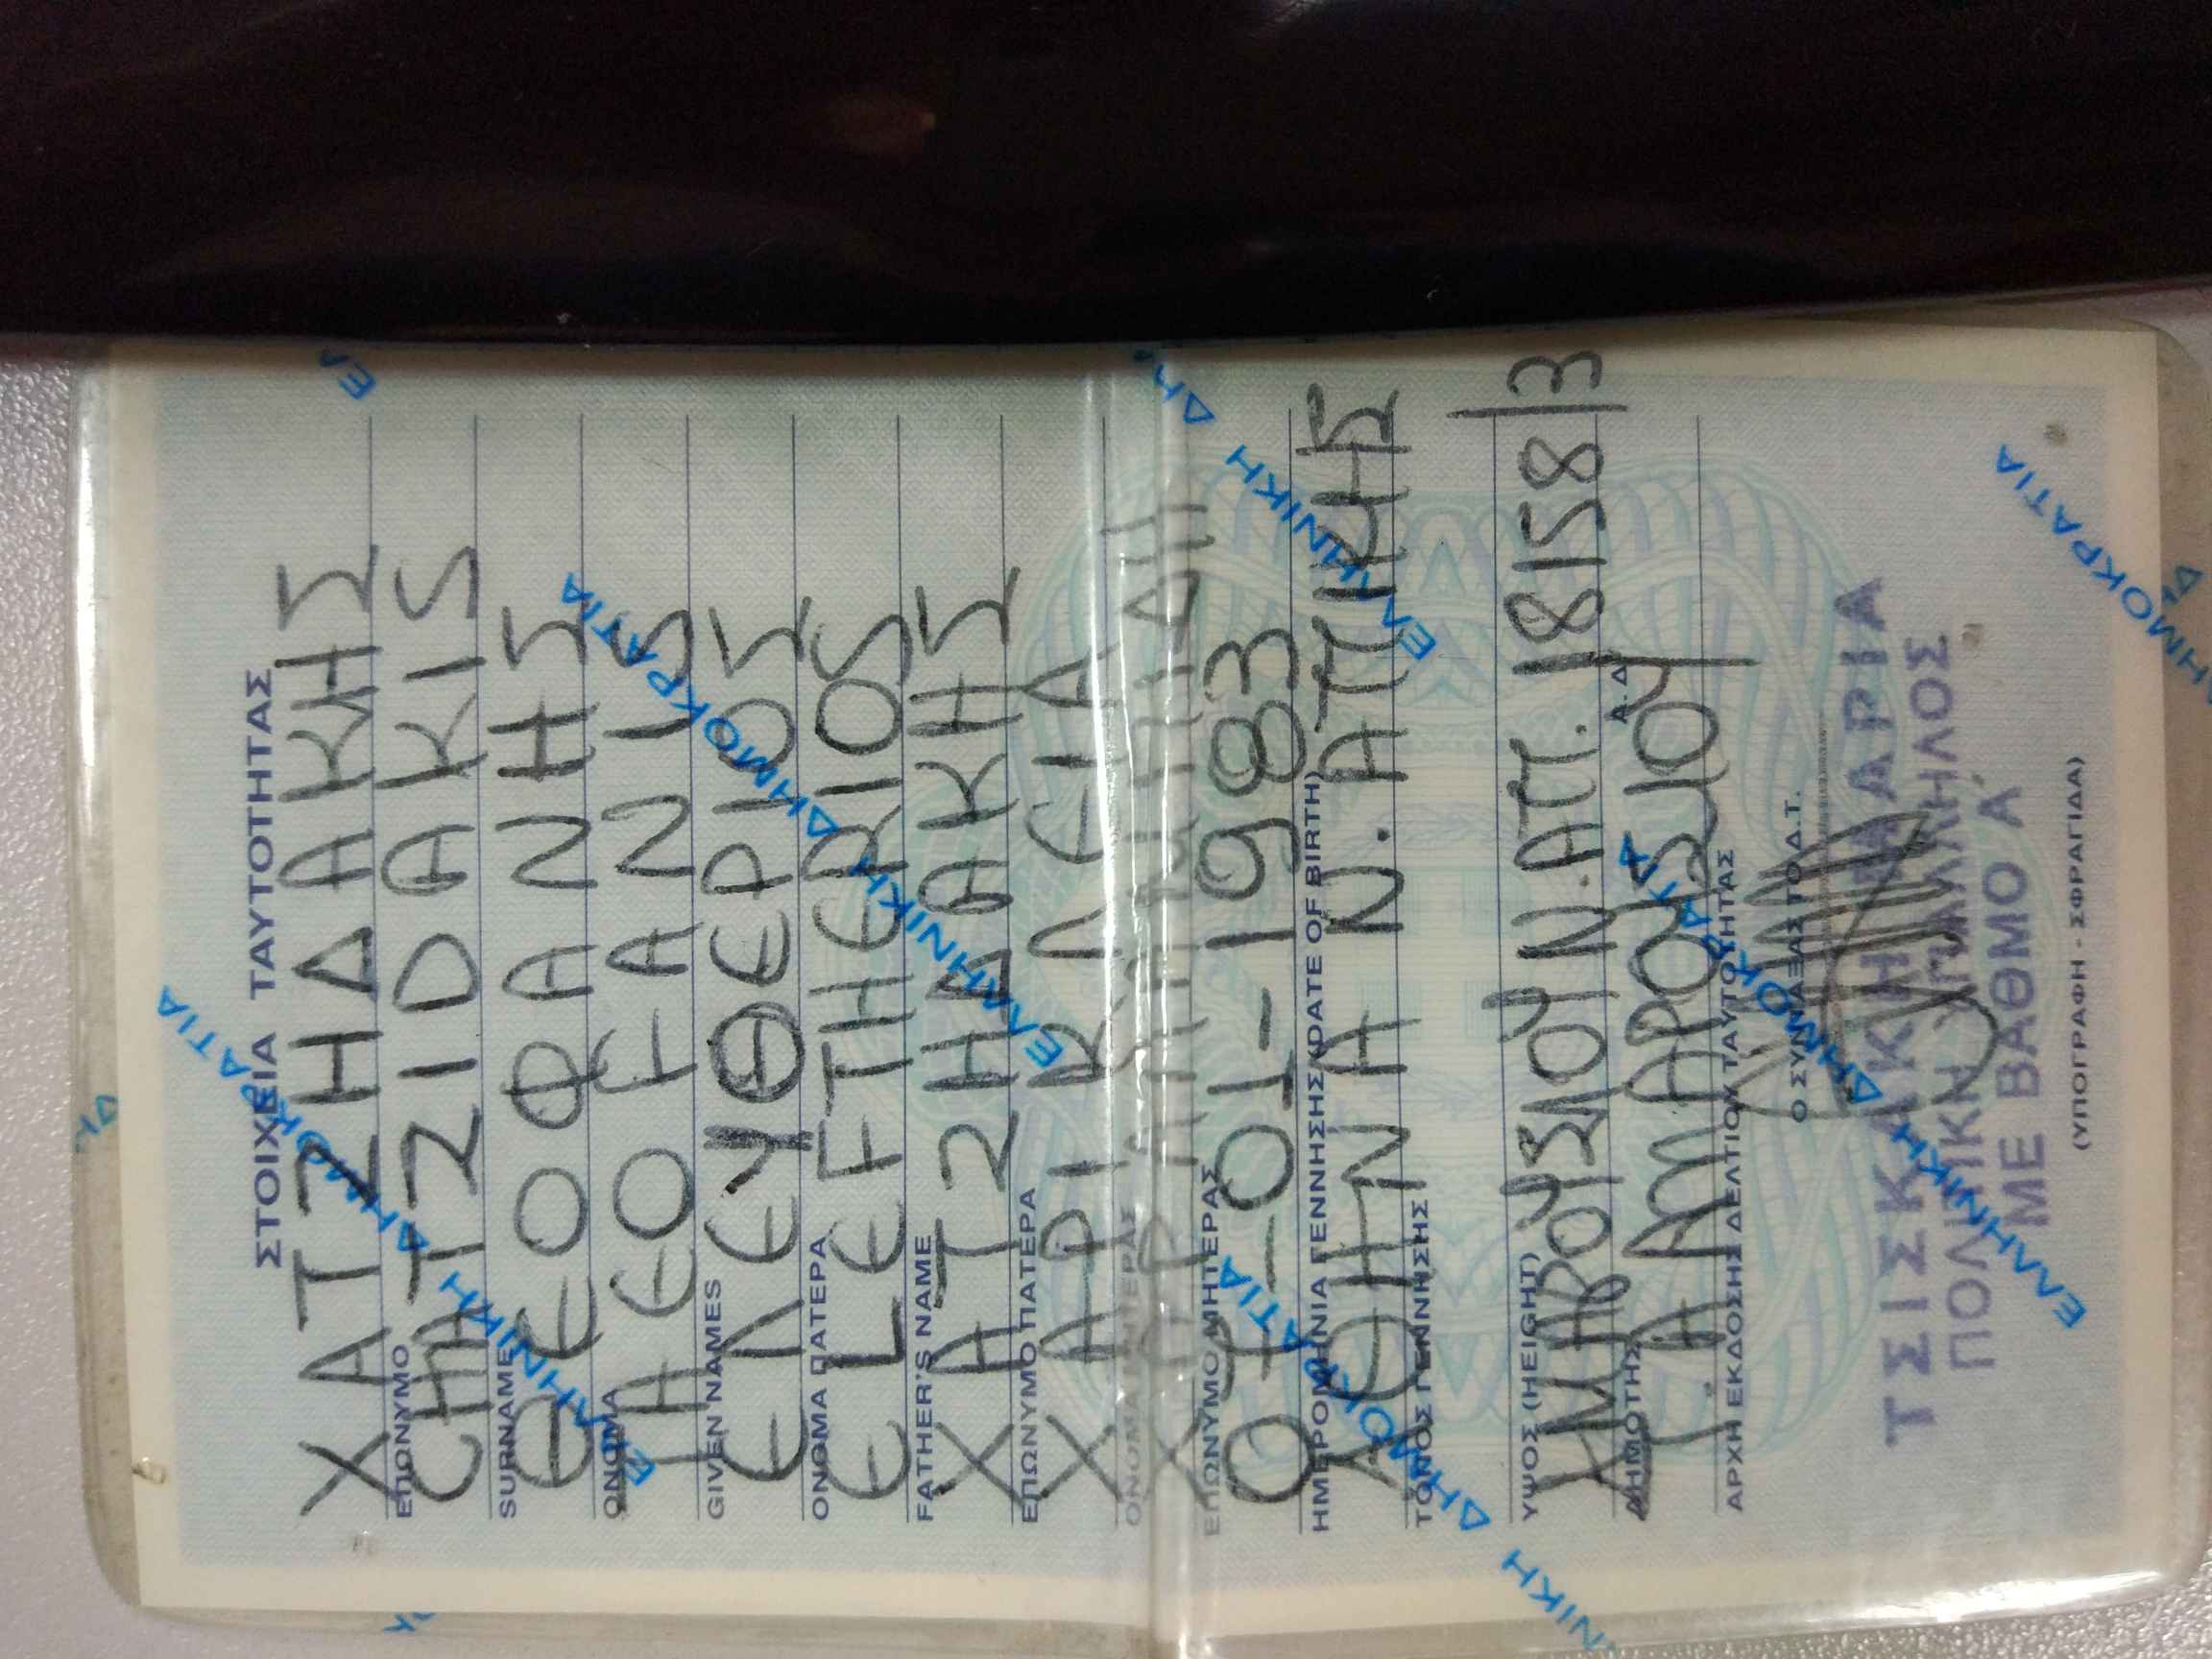 ΣΤΟΙΧΕΙΑ ΤΑΥΤΟΤΗΤΑΣ
ΧΑΤΖΗΔΑΚΗΣ
ΕΠΩΝΥΜΟ
CHATZIDAKIS
SURNAME
ΘΕΟΦΑΝΗΣ
ΟΝΟΜΑ
THEOFANIS
GIVEN NAMES
ΕΛΕΥΘΕΡΙΟΣ
ΟΝΟΜΑ ΠΑΤΕΡΑ
ELEFTHERIOS
FATHER'S NAME
ΧΑΤΖΗΔΑΚΗΣ
ΕΠΩΝΥΜΟ ΠΑΤΕΡΑ
ΧΑΡΙΚΛΕΙΑ
ΟΝΟΜΑ ΜΗΤΕΡΑΣ
ΕΠΩΝΥΜΟ ΜΗΤΕΡΑΣ
-01-1983
ΗΜΕΡΟΜΗΝΙΑ ΓΕΝΝΗΣΗΣ (DATE OF BIRTH)
ΑΘΗΝΑ Ν. ΑΤΤΙΚΗΣ
ΤΟΠΟΣ ΓΕΝΝΗΣΗΣ
ΥΨΟΣ (HEIGHT)
ΑΜΑΡΟΥΣΙΟΥ Ν.ΑΤΤ. 18158/3
ΔΗΜΟΤΗΣ
Α.Δ.
Τ.Α ΑΜΑΡΟΥΣΙΟΥ
ΑΡΧΗ ΕΚΔΟΣΗΣ ΔΕΛΤΙΟΥ ΤΑΥΤΟΤΗΤΑΣ
Ο ΣΥΝΤΑΞΑΣ ΤΟ Δ.Τ.
ΤΣΙΣΚΑΚΗ ΜΑΡΙΑ
ΠΟΛΙΤΙΚΗ ΥΠΑΛΛΗΛΟΣ
ΜΕ ΒΑΘΜΟ Α΄
(ΥΠΟΓΡΑΦΗ - ΣΦΡΑΓΙΔΑ)
ΕΛΛΗΝΙΚΗ ΔΗΜΟΚΡΑΤΙΑ